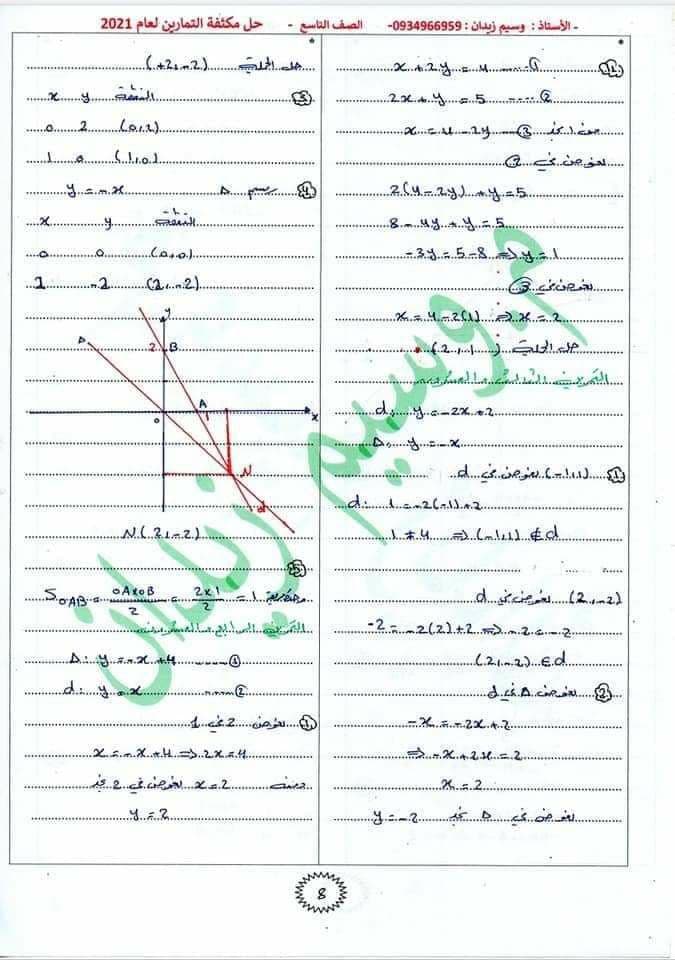 - الأستاذ : وسيم زيدان : 0934966959- الصف التاسع - حل مكثفة التمارين لعام 2021
x + 2y = 4 ...... ①
2x + y = 5 ...... ②
من 1 نجد ③ x = 4 - 2y
نعوض في ②
2(4 - 2y) + y = 5
8 - 4y + y = 5
-3y = 5 - 8 ⇒ y = 1
نعوض في ③
x = 4 - 2(1) ⇒ x = 2
حل الجملة (2, 1)
التمرين الثالث والعشرون
d: y = -2x + 2
Δ: y = -x
① (-1, 1) نعوض في d
d: 1 = -2(-1) + 2
1 ≠ 4 ⇒ (-1, 1) ∉ d
(2, -2) نعوض في d
-2 = -2(2) + 2 ⇒ -2 = -2
(2, -2) ∈ d
② نعوض Δ في d
-x = -2x + 2
⇒ -x + 2x = 2
x = 2
نعوض في Δ نجد y = -2
حل الجملة (+2, -2)
③ النقطة y x
0 2 (0, 2)
1 0 (1, 0)
④ رسم Δ y = -x
x y النقطة
0 0 (0, 0)
2 -2 (2, -2)
y
Δ
2 B
A
0 1 x
N
d
N(2, -2)
⑤
S OAB = OA×OB/2 = 2×1/2 = 1 وحدة مربعة
التمرين الرابع والعشرون
Δ: y = -x + 4 ...... ①
d: y = x ...... ②
① نعوض 2 في 1
x = -x + 4 ⇒ 2x = 4
ومنه x = 2 نعوض في 2 نجد
y = 2
8
م. وسيم زيدان